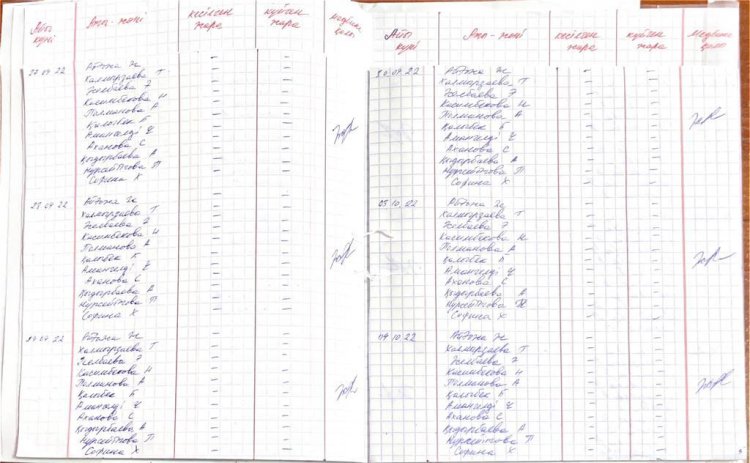 Айы күні | Аты-жөні | кесілген жара | күйген жара | Медбике қолы
Абдожа Ж - -
Калмурзаева Т - -
Әселбаева Э - -
Касимбекова Н - -
Полманова А - -
Қалыбек Б - -
Амангелді Ұ - -
Ақанова С - -
Қыдырбаева А - -
Нурсейтова П - -
Сорина Х - -
28 09 22 Абдожа Ж - -
Калмурзаева Т - -
Әселбаева Э - -
Касимбекова Н - -
Полманова А - -
Қалыбек Б - -
Амангелді Ұ - -
Ақанова С - -
Қыдырбаева А - -
Нурсейтова П - -
Сорина Х - -
Абдожа Ж - -
Калмурзаева Т - -
Әселбаева Э - -
Касимбекова Н - -
Полманова А - -
Қалыбек Б - -
Амангелді Ұ - -
Ақанова С - -
Қыдырбаева А - -
Нурсейтова П - -
Сорина Х - -
Айы күні | Аты-жөні | кесілген жара | күйген жара | Медбике қолы
30.09.22 Абдожа Ж - -
Калмурзаева Т - -
Әселбаева Э - -
Касимбекова Н - -
Полманова А - -
Қалыбек Б - -
Амангелді Ұ - -
Ақанова С - -
Қыдырбаева А - -
Нурсейтова П - -
Сорина Х - -
03 10. 22 Абдожа Ж - -
Калмурзаева Т - -
Әселбаева Э - -
Касимбекова Н - -
Полманова А - -
Қалыбек Б - -
Амангелді Ұ - -
Ақанова С - -
Қыдырбаева А - -
Нурсейтова П - -
Сорина Х - -
04 10. 22 Абдожа Ж - -
Калмурзаева Т - -
Әселбаева Э - -
Касимбекова Н - -
Полманова А - -
Қалыбек Б - -
Амангелді Ұ - -
Ақанова С - -
Қыдырбаева А - -
Нурсейтова П - -
Сорина Х - -